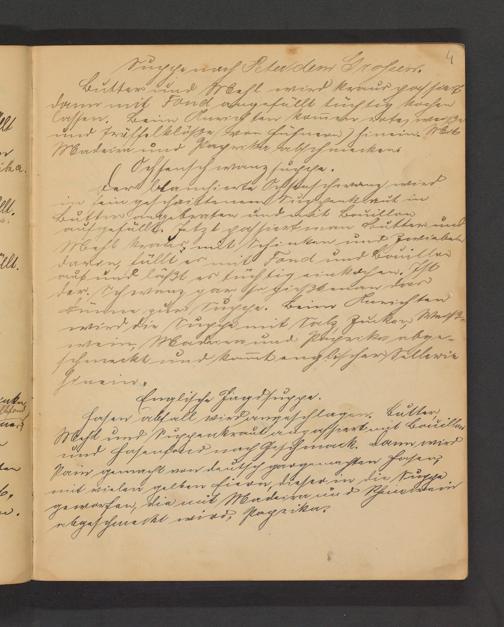 4
Suppe nach Peter dem Großen.
Butter und Mehl wird kraus passirt
dann mit Fond angefüllt tüchtig kochen
lassen. Beim Anrichten kommen rote, weiße
und Trüffelklöße (von Hühnern) hinein. Mit
Madeira und Paprika abschmecken
Ochsenschwanzsuppe.
Der blanchierte Ochsenschwanz wird
in fein geschnittenem Suppenkraut in
Butter angebraten und mit Bouillon
aufgefüllt. Jetzt passiert man Butter und
Mehl kraus mit Schinken und Zwiebeln
daran, füllt es mit Fond und Bouillon
auf und läßt es tüchtig einkochen. Ist
der Schwanz gar
zur Suppe. Beim Anrichten
wird die Suppe mit Salz Zucker
wein, Madeira und Paprika abge-
schmeckt und kommt englischer Sellerie
hinein.
Englische Jagdsuppe.
Hasen abfall wird angeschlagen. Butter
Mehl und Suppenkraut angepassiert mit Bouillon
und Hasenfond nach Geschmack. Dann wird
gemacht von deutsch gargemachten Hasen
mit vielen gelben Eiern, dieser in die Suppe
geworfen, die mit Madeira und Rheinwein
abgeschmeckt wird, Paprika.